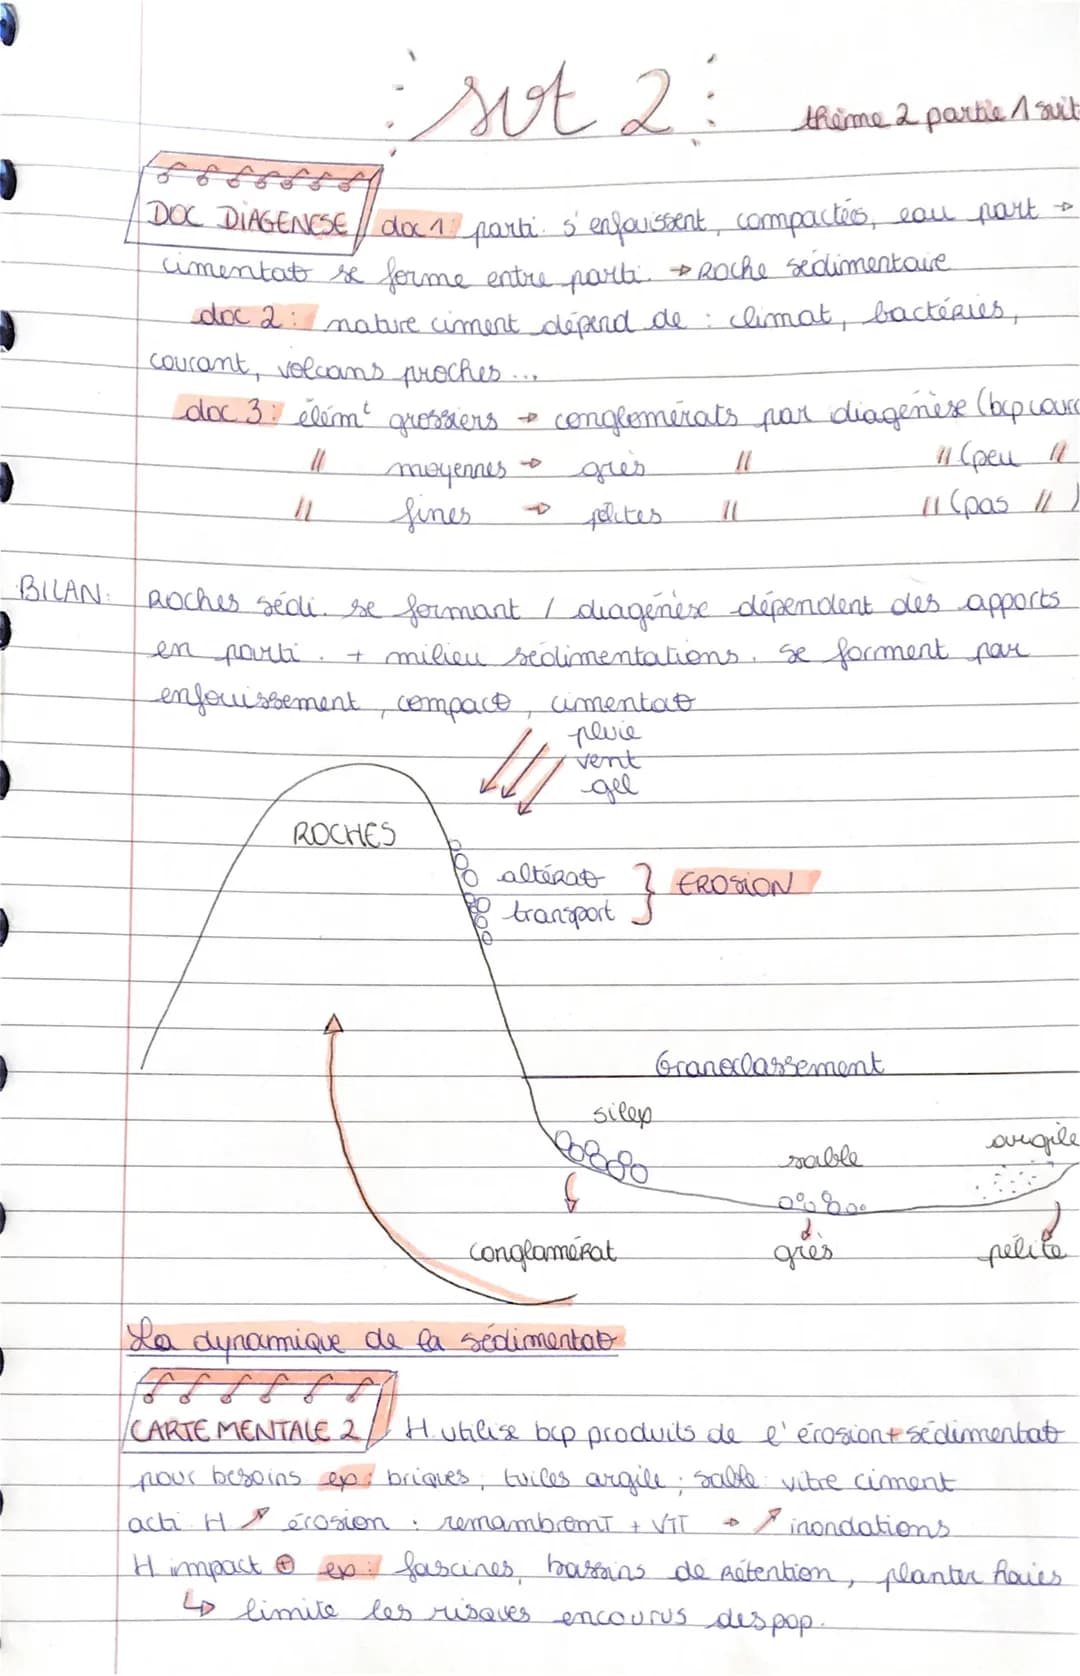 svt 2
thème 2 partie 1 suit
DOC DIAGENESE doc 1: parti. s'enfouissent, compactées, eau part →
cimentat° se forme entre parti. → Roche sédimentaire
doc 2: nature ciment dépend de : climat, bactéries,
courant, volcans proches ...
doc 3: élémt grossiers → conglomérats par diagenèse (bcp cour
" moyennes → grès " " (peu "
" fines → pélites " " (pas " )
BILAN: Roches sédi. se formant / diagénèse dépendent des apports
en parti. + milieu sédimentations. Se forment par
enfouissement, compact°, cimentat°
pluie
vent
gel
ROCHES
altérat°
transport
} EROSION
Granoclassement
silex
sable
argile
conglomérat
grès
pélite
La dynamique de la sédimentat°
CARTE MENTALE 2 H. utilise bcp produits de l'érosion + sédimentat°
pour besoins ex: briques, tuiles argile ; sable: vitre ciment
acti. H ↗ érosion : remambremT + VTT → ↗ inondations
H impact ⊕ ex: fascines, bassins de rétention, planter haies
↳ limite les risques encourus des pop.